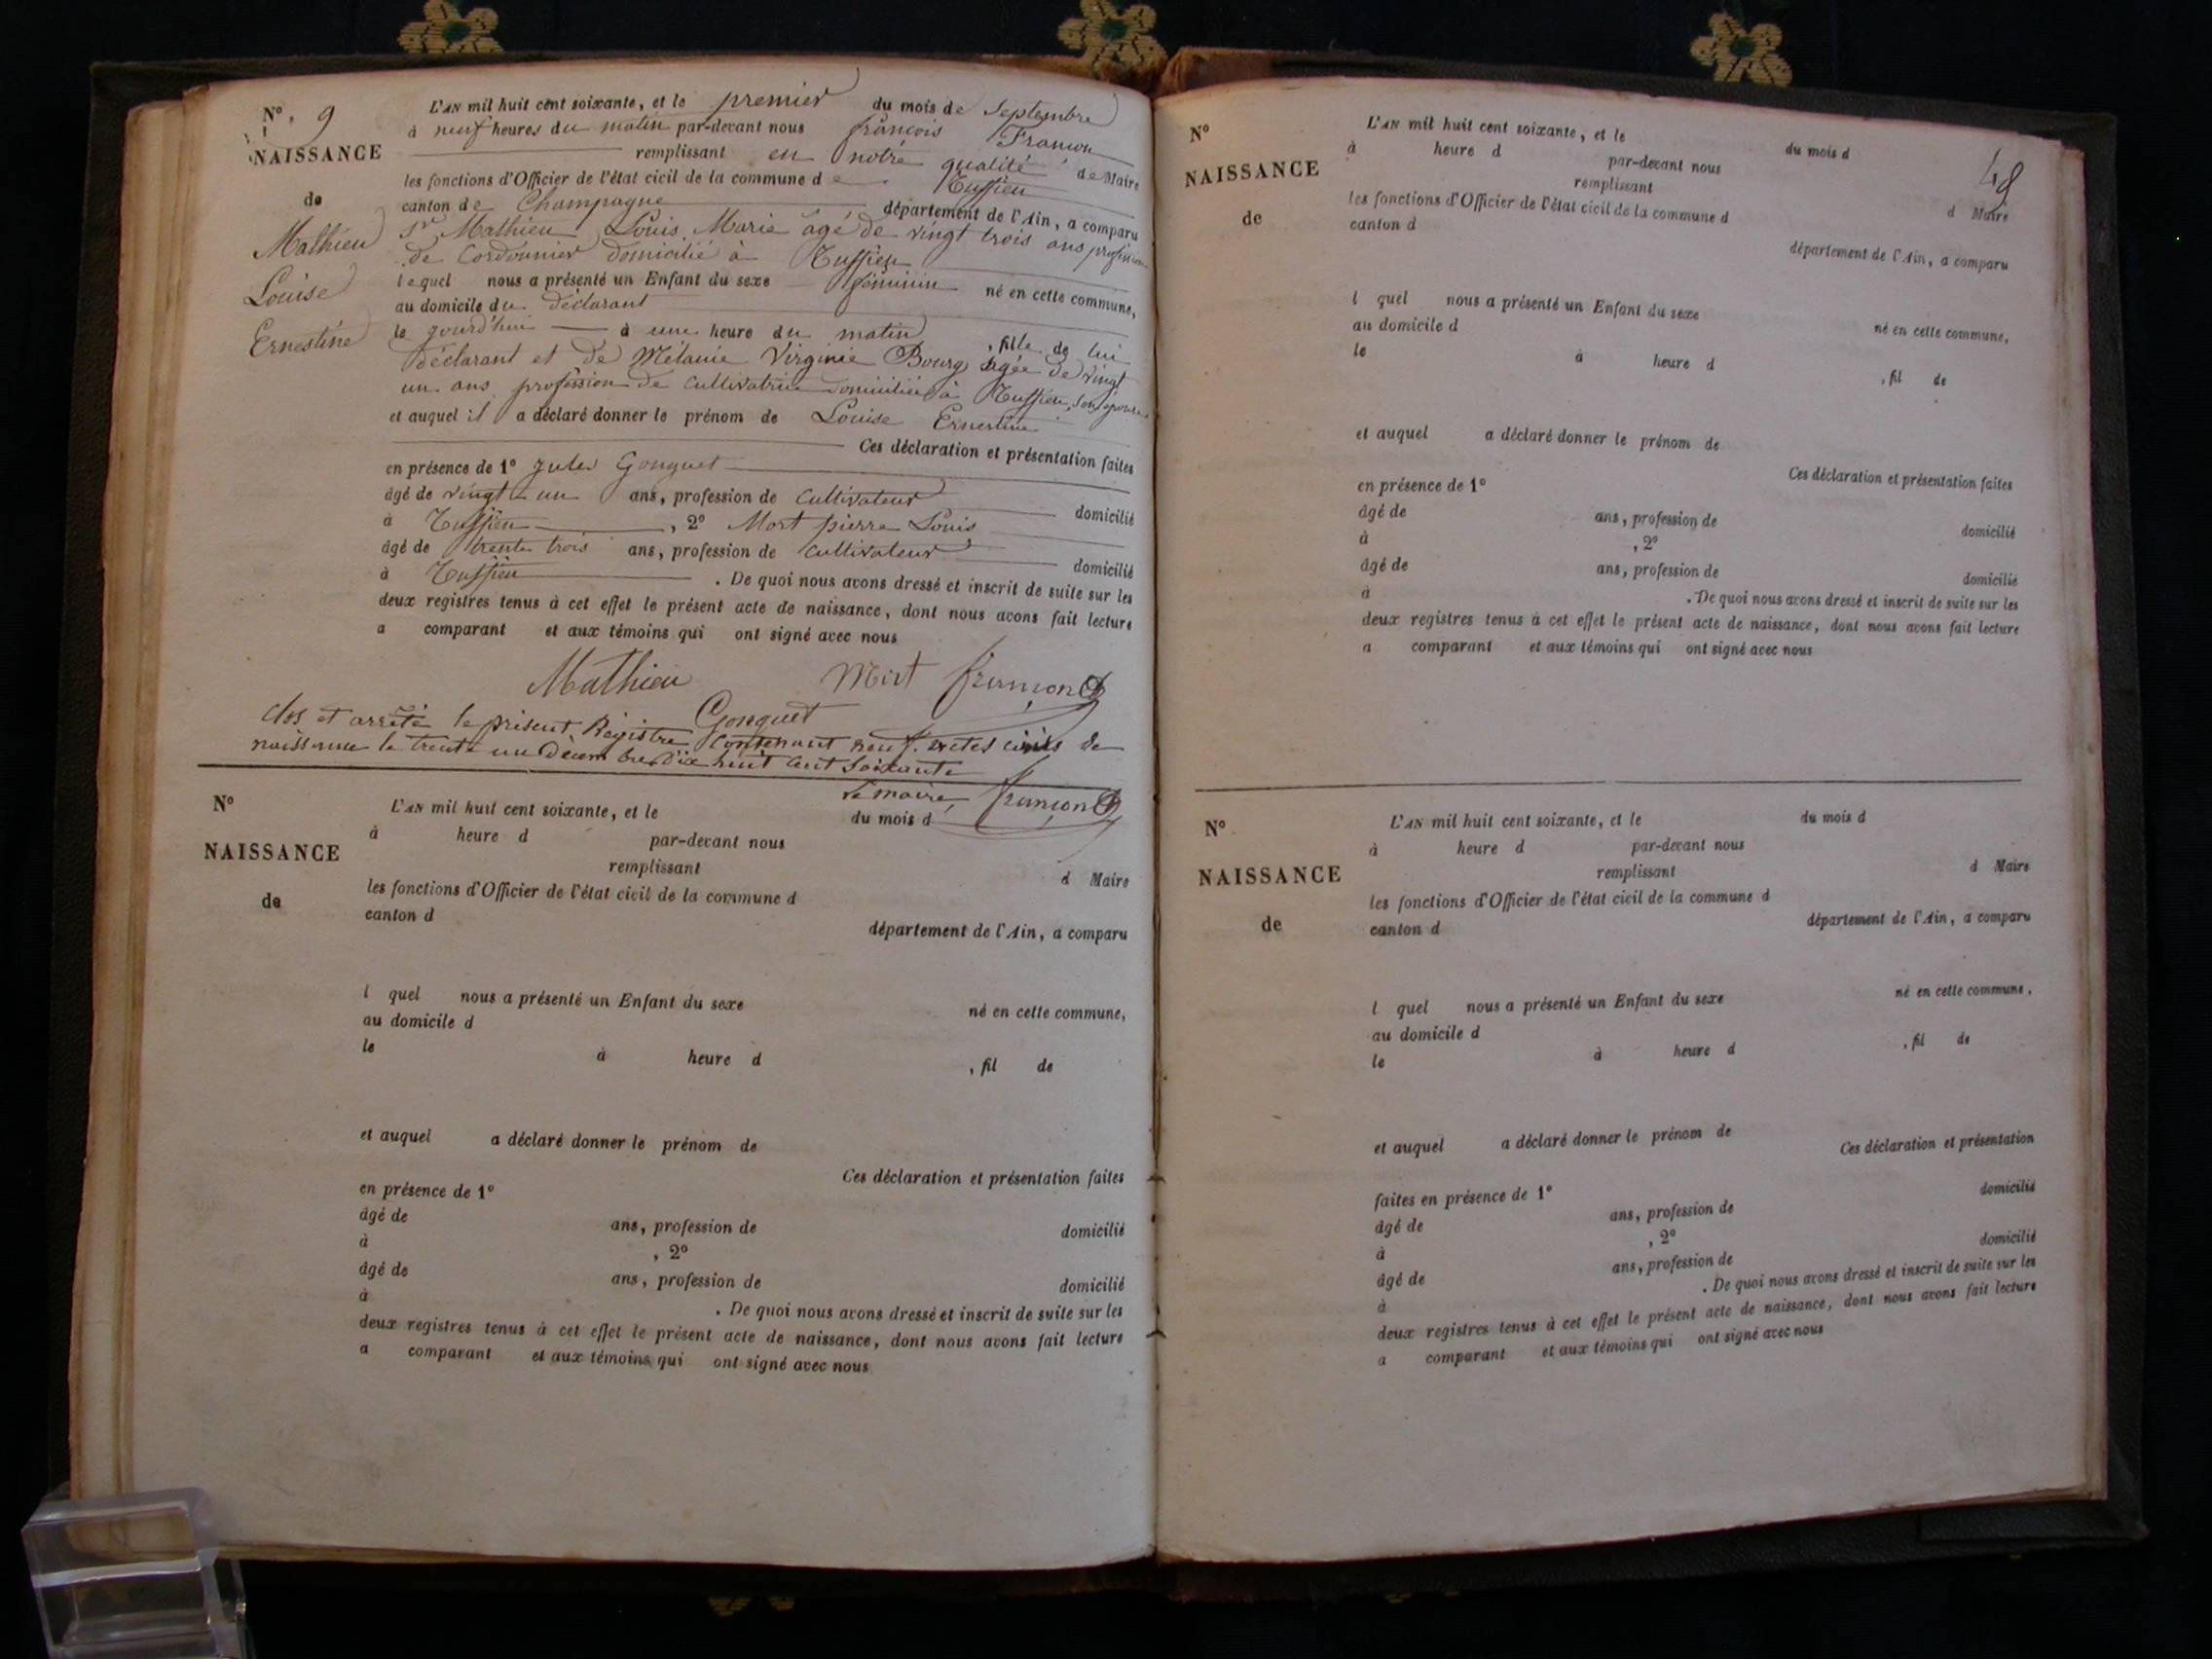 N° 9
NAISSANCE
de
Mathieu
Louise
Ernestine
L'AN mil huit cent soixante, et le premier du mois de Septembre
à neuf heures du matin par-devant nous françois Francon
remplissant en notre qualité de Maire
les fonctions d'Officier de l'état civil de la commune de
canton de Champagne département de l'Ain, a comparu
Sr Mathieu Louis Marie âgé de vingt trois ans profession
de Cordonnier domicilié à
lequel nous a présenté un Enfant du sexe féminin né en cette commune,
au domicile du déclarant
le jourd'hui à une heure du matin, fille de lui
déclarant et de Mélanie Virginie Bourg âgée de vingt
un ans profession de Cultivatrice domiciliée à son épouse
et auquel il a déclaré donner le prénom de Louise Ernestine
Ces déclaration et présentation faites
en présence de 1° Jules Gonguet
âgé de vingt un ans, profession de Cultivateur domicilié
à , 2° Mort pierre Louis
âgé de trente trois ans, profession de Cultivateur domicilié
à . De quoi nous avons dressé et inscrit de suite sur les
deux registres tenus à cet effet le présent acte de naissance, dont nous avons fait lecture
a comparant et aux témoins qui ont signé avec nous
Mathieu Mort francon
Gonguet
clos et arrêté le présent Régistre Contenant neuf actes civils de
naissance le trente un Décembre Dix huit cent Soixante
Le maire, francon
N°
NAISSANCE
de
L'AN mil huit cent soixante, et le du mois d
à heure d par-devant nous
remplissant d Maire
les fonctions d'Officier de l'état civil de la commune d
canton d département de l'Ain, a comparu
l quel nous a présenté un Enfant du sexe né en cette commune,
au domicile d
le à heure d , fil de
et auquel a déclaré donner le prénom de
Ces déclaration et présentation faites
en présence de 1°
âgé de ans, profession de domicilié
à , 2°
âgé de ans, profession de domicilié
à . De quoi nous avons dressé et inscrit de suite sur les
deux registres tenus à cet effet le présent acte de naissance, dont nous avons fait lecture
a comparant et aux témoins qui ont signé avec nous
48
N°
NAISSANCE
de
L'AN mil huit cent soixante, et le du mois d
à heure d par-devant nous
remplissant d Maire
les fonctions d'Officier de l'état civil de la commune d
canton d département de l'Ain, a comparu
l quel nous a présenté un Enfant du sexe né en cette commune,
au domicile d
le à heure d , fil de
et auquel a déclaré donner le prénom de
Ces déclaration et présentation faites
en présence de 1°
âgé de ans, profession de domicilié
à , 2°
âgé de ans, profession de domicilié
à . De quoi nous avons dressé et inscrit de suite sur les
deux registres tenus à cet effet le présent acte de naissance, dont nous avons fait lecture
a comparant et aux témoins qui ont signé avec nous
N°
NAISSANCE
de
L'AN mil huit cent soixante, et le du mois d
à heure d par-devant nous
remplissant d Maire
les fonctions d'Officier de l'état civil de la commune d
canton d département de l'Ain, a comparu
l quel nous a présenté un Enfant du sexe né en cette commune,
au domicile d
le à heure d , fil de
et auquel a déclaré donner le prénom de
Ces déclaration et présentation
faites en présence de 1°
âgé de ans, profession de domicilié
à , 2°
âgé de ans, profession de domicilié
à . De quoi nous avons dressé et inscrit de suite sur les
deux registres tenus à cet effet le présent acte de naissance, dont nous avons fait lecture
a comparant et aux témoins qui ont signé avec nous